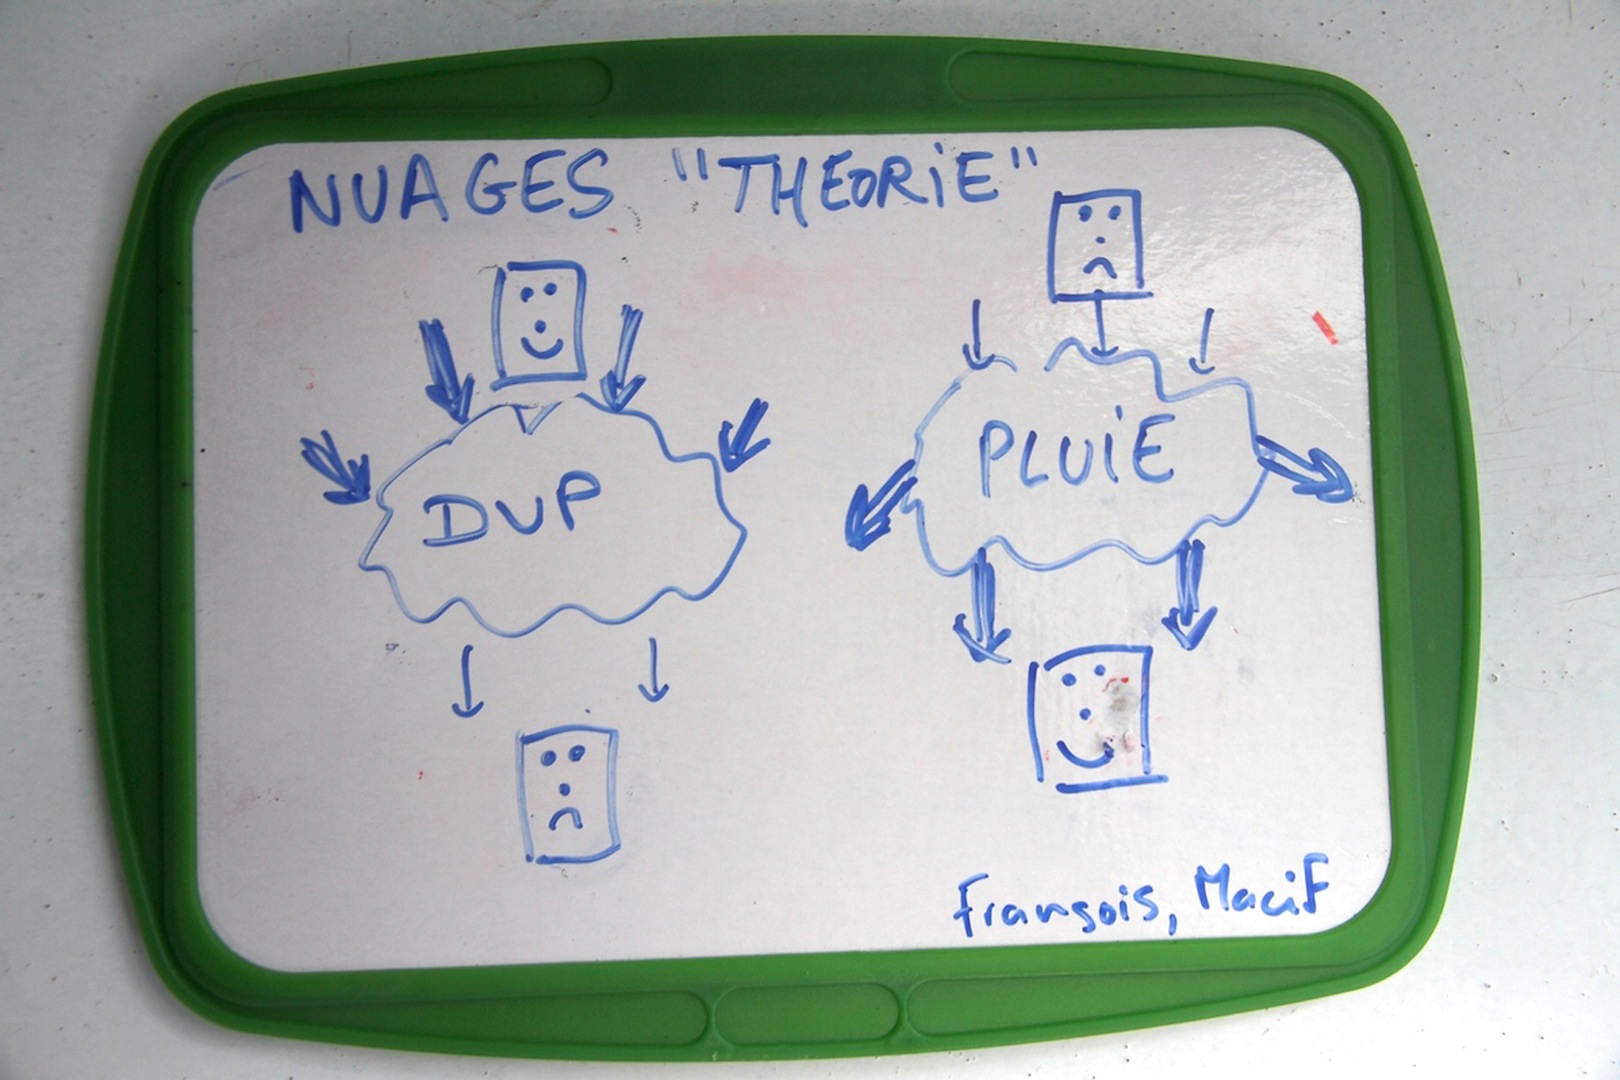 NUAGES "THEORIE"
DVP
PLUiE
François, Macif